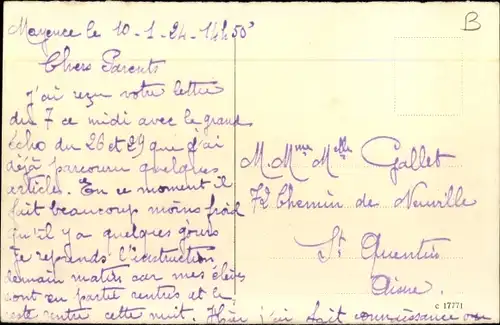 Mayence le 10-1-24-14h50'
Chers Parents
J'ai reçu votre lettre
du 7 ce midi avec le grand
écho du 26 et 29 que j'ai
déjà parcouru quelques
articles. En ce moment il
fait beaucoup moins froid
qu'il y a quelques jours
Je reprends l'instruction
demain matin car mes élèves
sont en partie rentrés et le
reste rentre cette nuit. Hier j'ai fait connaissance
B
M. Mme Melle Gallet
72 Chemin de Neuville
St Quentin
Aisne.
c 17771